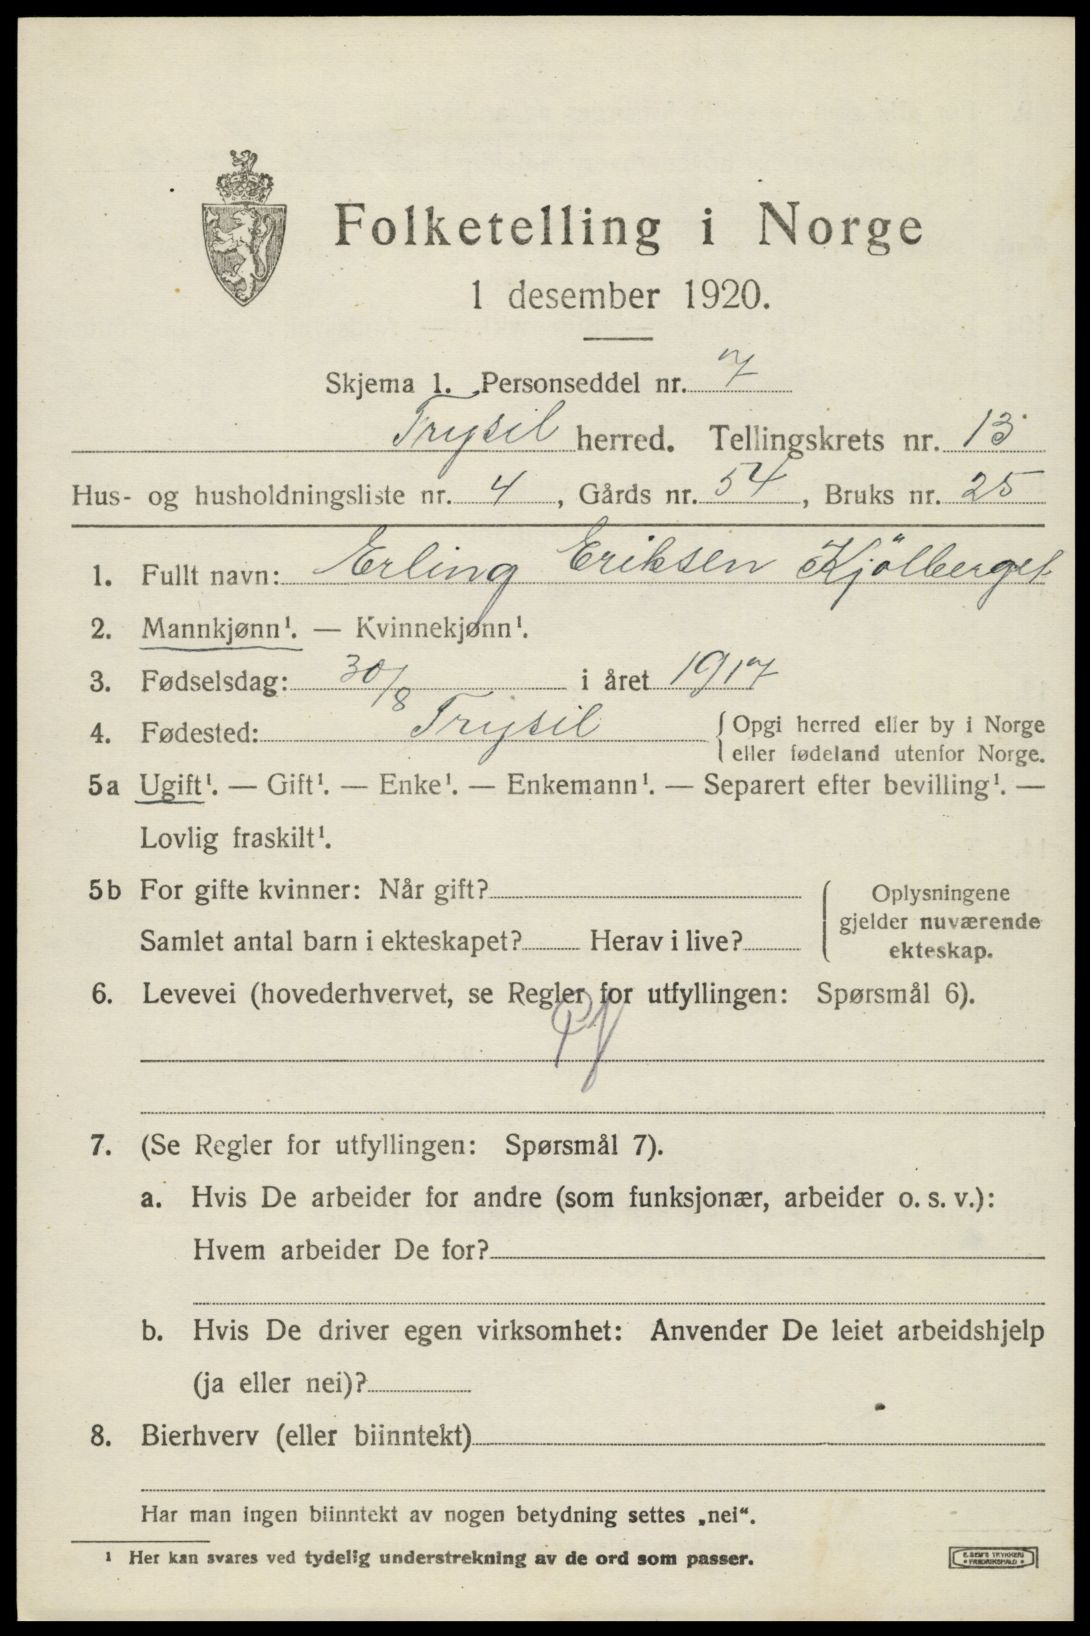 Folketelling i Norge
1 desember 1920.
Skjema 1. Personseddel nr. 7
Trysil herred. Tellingskrets nr. 13
Hus- og husholdningsliste nr. 4, Gårds nr. 54, Bruks nr. 25
1. Fullt navn: Erling Eriksen Kjölberget
2. Mannkjønn¹. — Kvinnekjønn¹.
3. Fødselsdag: 30/8 i året 1917
4. Fødested: Trysil { Opgi herred eller by i Norge
eller fødeland utenfor Norge.
5a Ugift¹. — Gift¹. — Enke¹. — Enkemann¹. — Separert efter bevilling¹. —
Lovlig fraskilt¹.
5b For gifte kvinner: Når gift?
Samlet antal barn i ekteskapet? Herav i live?
{ Oplysningene
gjelder nuværende
ekteskap.
6. Levevei (hovederhvervet, se Regler for utfyllingen: Spørsmål 6).
7. (Se Regler for utfyllingen: Spørsmål 7).
a. Hvis De arbeider for andre (som funksjonær, arbeider o. s. v.):
Hvem arbeider De for?
b. Hvis De driver egen virksomhet: Anvender De leiet arbeidshjelp
(ja eller nei)?
8. Bierhverv (eller biinntekt)
Har man ingen biinntekt av nogen betydning settes „nei“.
¹ Her kan svares ved tydelig understrekning av de ord som passer.